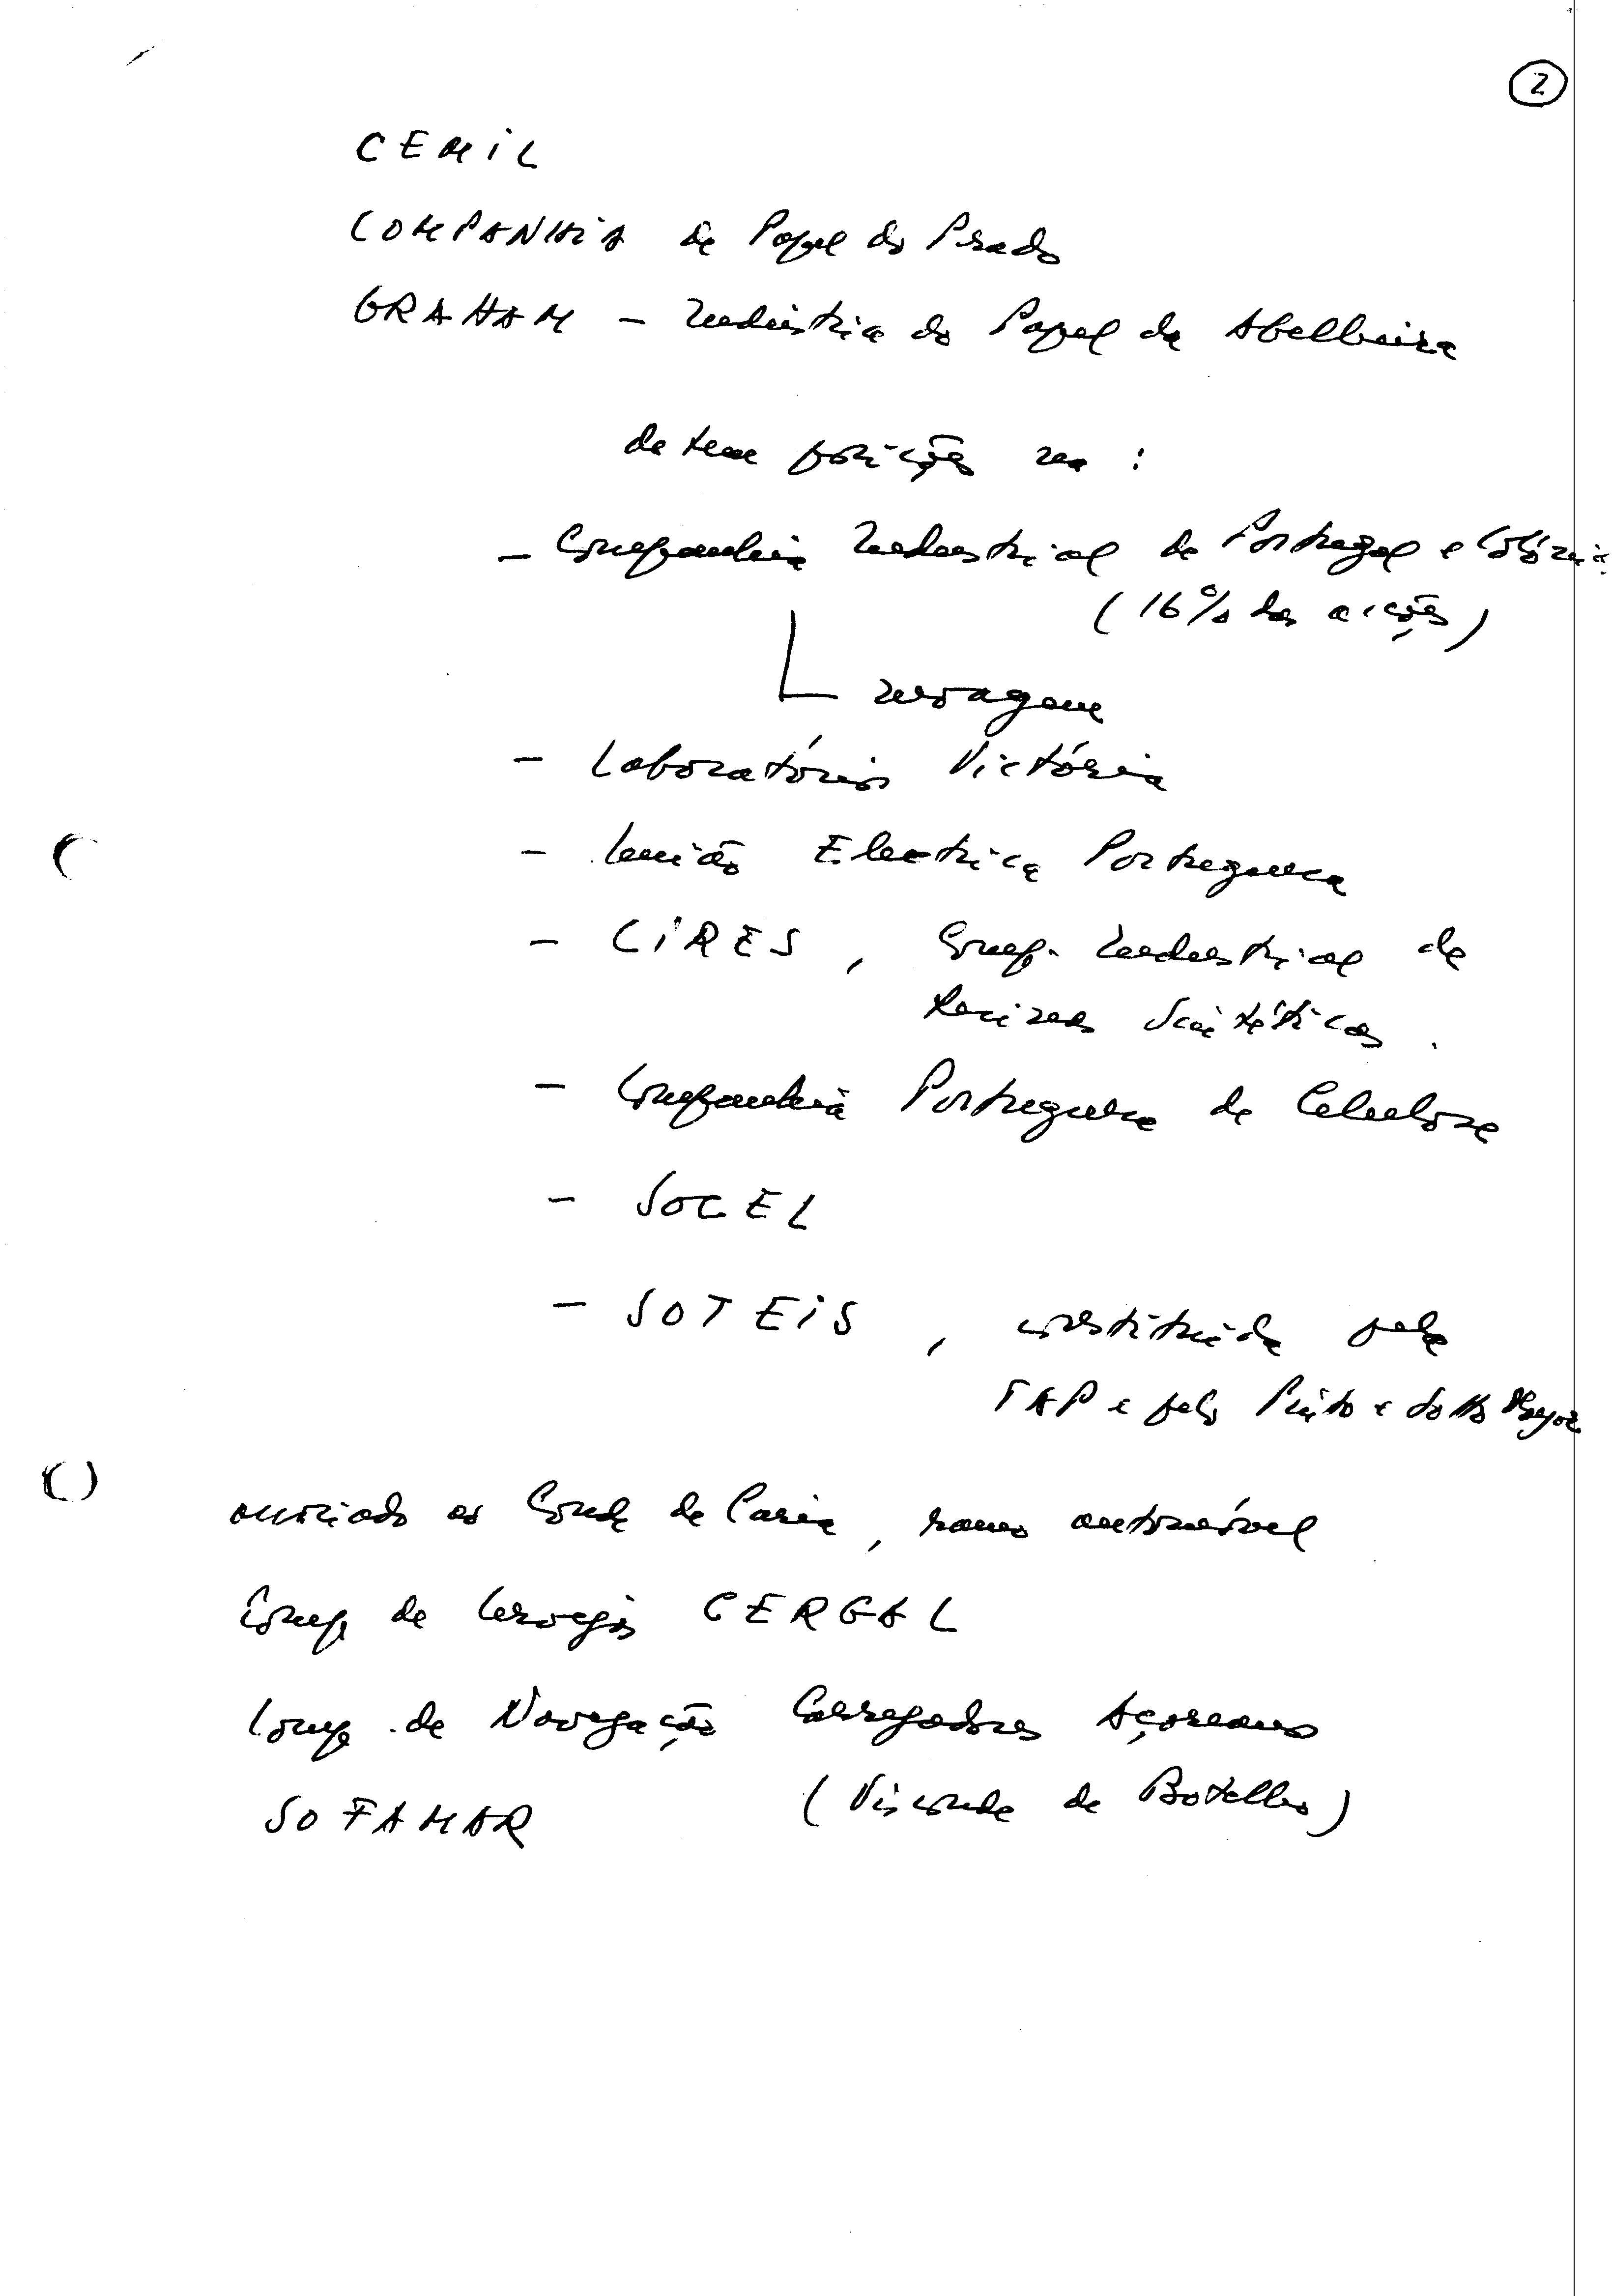 2
CEMIL
COMPANHIA de Papel do Prado
GRAHAM - Indústria do Papel da Abelheira
detem posições na :
- Companhia Industrial de Portugal e Colónias
(16% das acções)
moagem
- Laboratórios Victória
- União Electrica Portuguesa
- CIRES, Comp. Industrial de
Resinas Sintéticas.
- Companhia Portuguesa de Celulose
- SOCEL
- SOTEIS, constituída pela
TAP e pelo Pinto e Sotto Mayor
associado ao Conde de Caria, ramo automóvel
Comp. de Cervejas CERGAL
Comp. de Navegação Carregadores Açoreanos
(Visconde de Botelho)
SOFAMAR